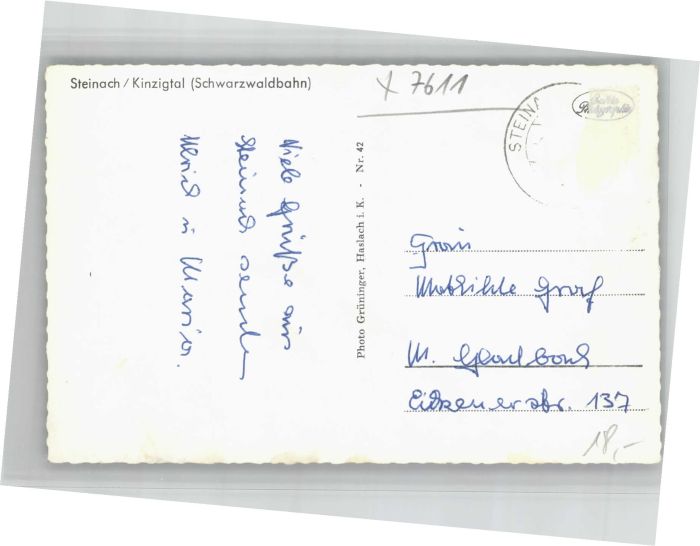 Steinach / Kinzigtal (Schwarzwaldbahn)
x 7611
STEINA
Viele Grüße aus
Steinach senden
Ulrich u. Maria.
Photo Grüninger, Haslach i. K. - Nr. 42
Echte
Photographie
Frau
Mathilde Graf
M. Gladbach
Eickenerstr. 137
18,-